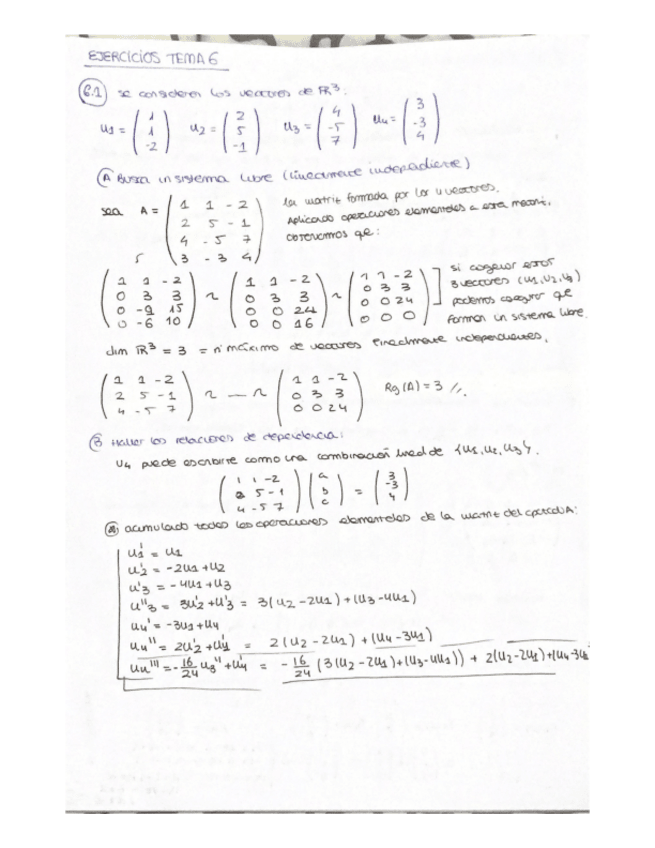 EJERCICIOS TEMA 6
6.1 se consideren los vectores de R³:
u1 = (1 1 -2) u2 = (2 5 -1) u3 = (4 -5 7) u4 = (3 -3 4)
A Busca un sistema libre (linealmente independiente)
sea A = (1 1 -2
2 5 -1
4 -5 7
3 -3 4)
la matriz formada por los 4 vectores.
Aplicando operaciones elementales a esta
obtenemos que:
(1 1 -2
0 3 3
0 -9 15
0 -6 10) ~ (1 1 -2
0 3 3
0 0 24
0 0 16) ~ (1 1 -2
0 3 3
0 0 24
0 0 0)
si cogemos estos
3 vectores (u1, u2, u3)
podemos asegurar que
forman un sistema libre.
dim R³ = 3 = nº máximo de vectores linealmente independientes.
(1 1 -2
2 5 -1
4 -5 7) ~ — ~ (1 1 -2
0 3 3
0 0 24) Rg(A) = 3 //.
B Hallar las relaciones de dependencia:
u4 puede escribirse como una combinación lineal de {u1, u2, u3}.
(1 1 -2
2 5 -1
4 -5 7) (a
b
c) = (3
-3
4)
acumulado todas las operaciones elementales de la matriz del apartado A:
u1' = u1
u2' = -2u1 + u2
u'3 = -4u1 + u3
u''3 = 3u'2 + u'3 = 3(u2 - 2u1) + (u3 - 4u1)
u4' = -3u1 + u4
u4'' = 2u'2 + u'4 = 2(u2 - 2u1) + (u4 - 3u1)
u4''' = -16/24 u3'' + u''4 = -16/24 (3(u2 - 2u1) + (u3 - 4u1)) + 2(u2 - 2u1) + (u4 - 3u